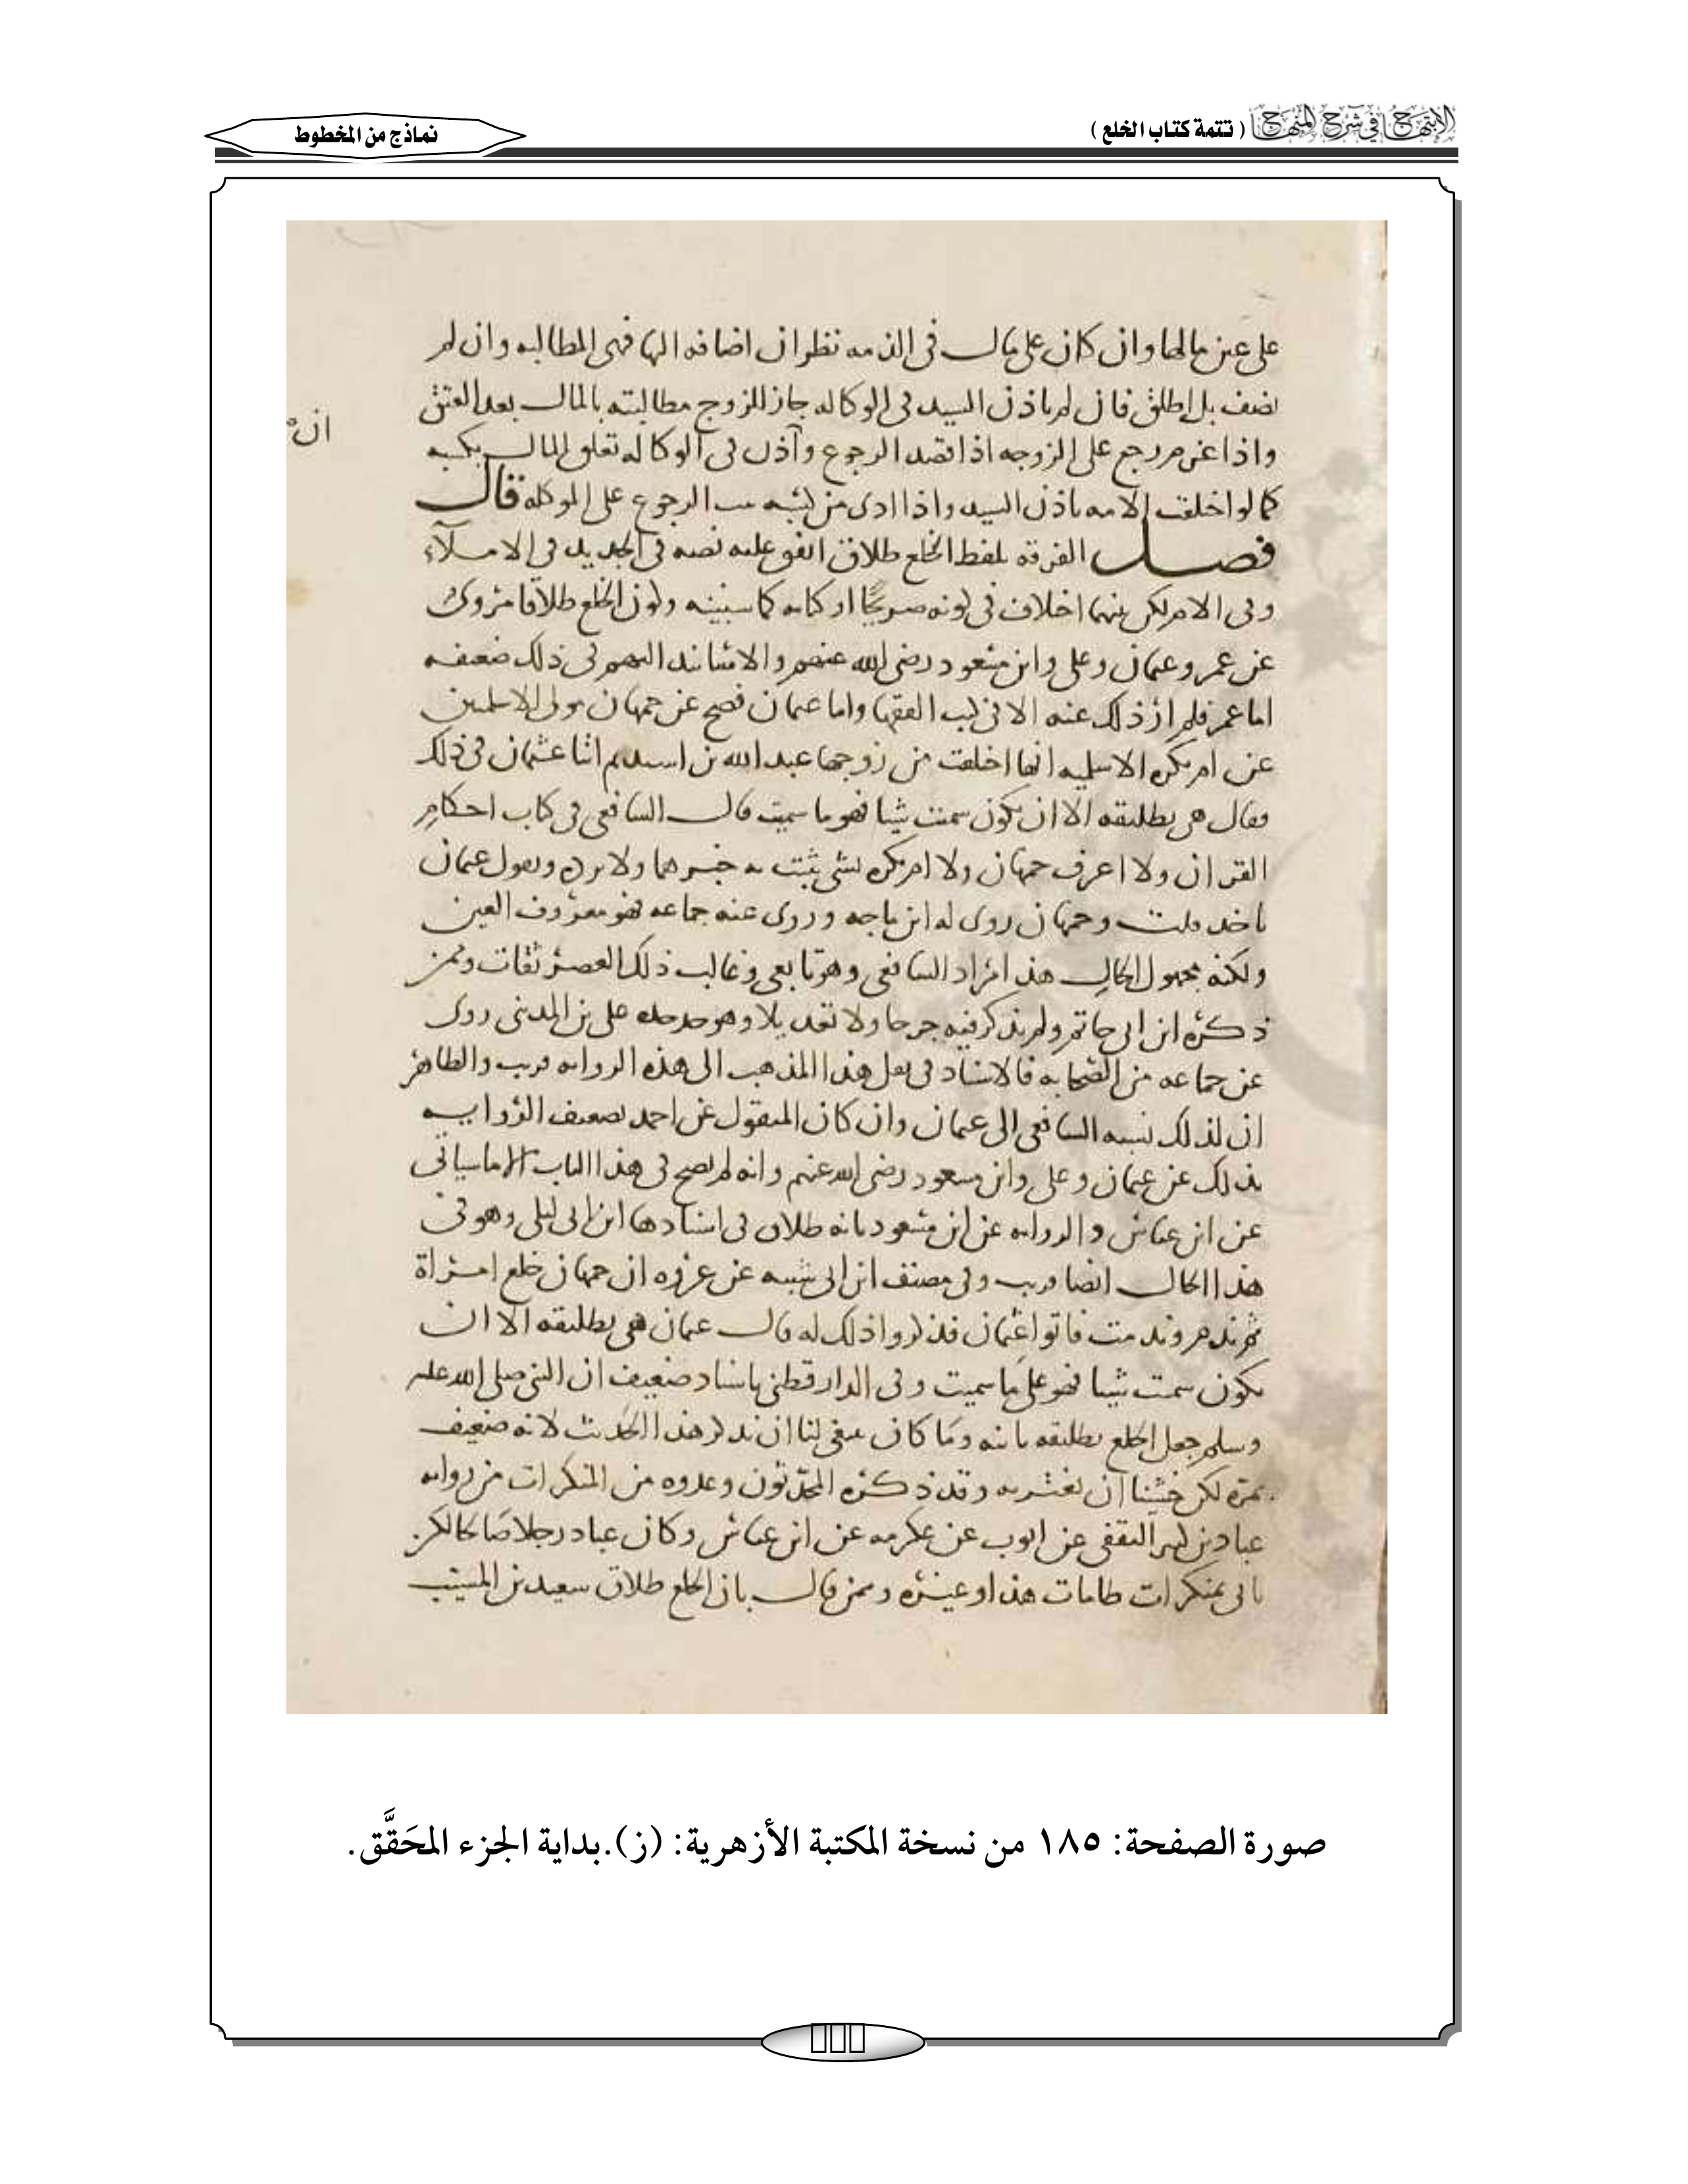 الابتهاج في شرح المنهاج ( تتمة كتاب الخلع )
نماذج من المخطوط
على عين مالها وان كان على مال في الذمه نظر ان اضافه اليها فهي المطالبه وان لم
يضف بل اطلق فان لم ياذن السيد في الوكاله جاز للزوج مطالبته بالمال بعد العتق
ان
واذا غرم رجع على الزوجه اذا قصد الرجوع وآذن في الوكاله تعلق المال بكسبه
كما لو اختلعت الامه باذن السيد واذا ادى من كسبه الرجوع على الموكله قال
فصل الفرقة بلفظ الخلع طلاق اتفق عليه نصه في الجديد في الاملآء
وفي الام لكن بينهما اختلاف في كونه صريحًا او كنايه كما سنبينه وكون الخلع طلاقا مروى
عن عمر وعثمان وعلى وابن مسعود رضى الله عنهم والاسانيد اليهم في ذلك ضعيفه
اما عمر فلم ار ذلك عنه الا في كتب الفقها واما عثمان فصح عن جمهان مولى الاسلميين
عن ام بكره الاسلميه انها اختلعت من زوجها عبد الله بن اسيد ثم اتيا عثمان في ذلك
فقال هى تطليقه الا ان تكون سمت شيا فهو ما سميت قال الشافعى في كتاب احكام
القران ولا اعرف جمهان ولا ام بكره بشى يثبت به خبرهما ولا يرده وبقول عثمان
ناخذ قلت وجمهان روى له ابن ماجه وروى عنه جماعه فهو معروف العين
ولكنه مجهول الحال هذا مراد الشافعى وهو تابعى وغالب ذلك العصر ثقات وممن
ذكره ابن ابى حاتم ولم يذكر فيه جرحا ولا تعديلا وهو جد جده على بن المدينى روى
عن جماعه من الصحابه فالاسناد في نقل هذا المذهب الى هذه الروايه قريب والظاهر
ان لذلك نسبه الشافعى الى عثمان وان كان المنقول عن احمد تضعيف الروايه
بذلك عن عثمان وعلى وابن مسعود رضى الله عنهم وانه لم يصح في هذا الباب الا ما سياتى
عن ابن عباس والروايه عن ابن مسعود بانه طلاق في اسنادها ابن ابى ليلى وهو في
هذا الحال ايضا قريب وفي مصنف ابن ابى شيبه عن عروه ان جمهان خلع امراة
ثم ندم وندمت فاتوا عثمان فذكروا ذلك له قال عثمان هى تطليقه الا ان
تكون سمت شيا فهو على ما سميت وفي الدارقطنى باسناد ضعيف ان النبى صلى الله عليه
وسلم جعل الخلع تطليقه باينه وما كان ينبغى لنا ان نذكر هذا الحديث لانه ضعيف
بمرة لكن خشينا ان يغتر به وقد ذكره المحدثون وعدوه من المنكرات من روايه
عباد بن كثير الثقفى عن ايوب عن عكرمه عن ابن عباس وكان عباد رجلا صالحا لكن
ياتى بمنكرات طامات هذا او غيره وممن قال بان الخلع طلاق سعيد بن المسيب
صورة الصفحة: ١٨٥ من نسخة المكتبة الأزهرية: (ز).بداية الجزء المحَقَّق.